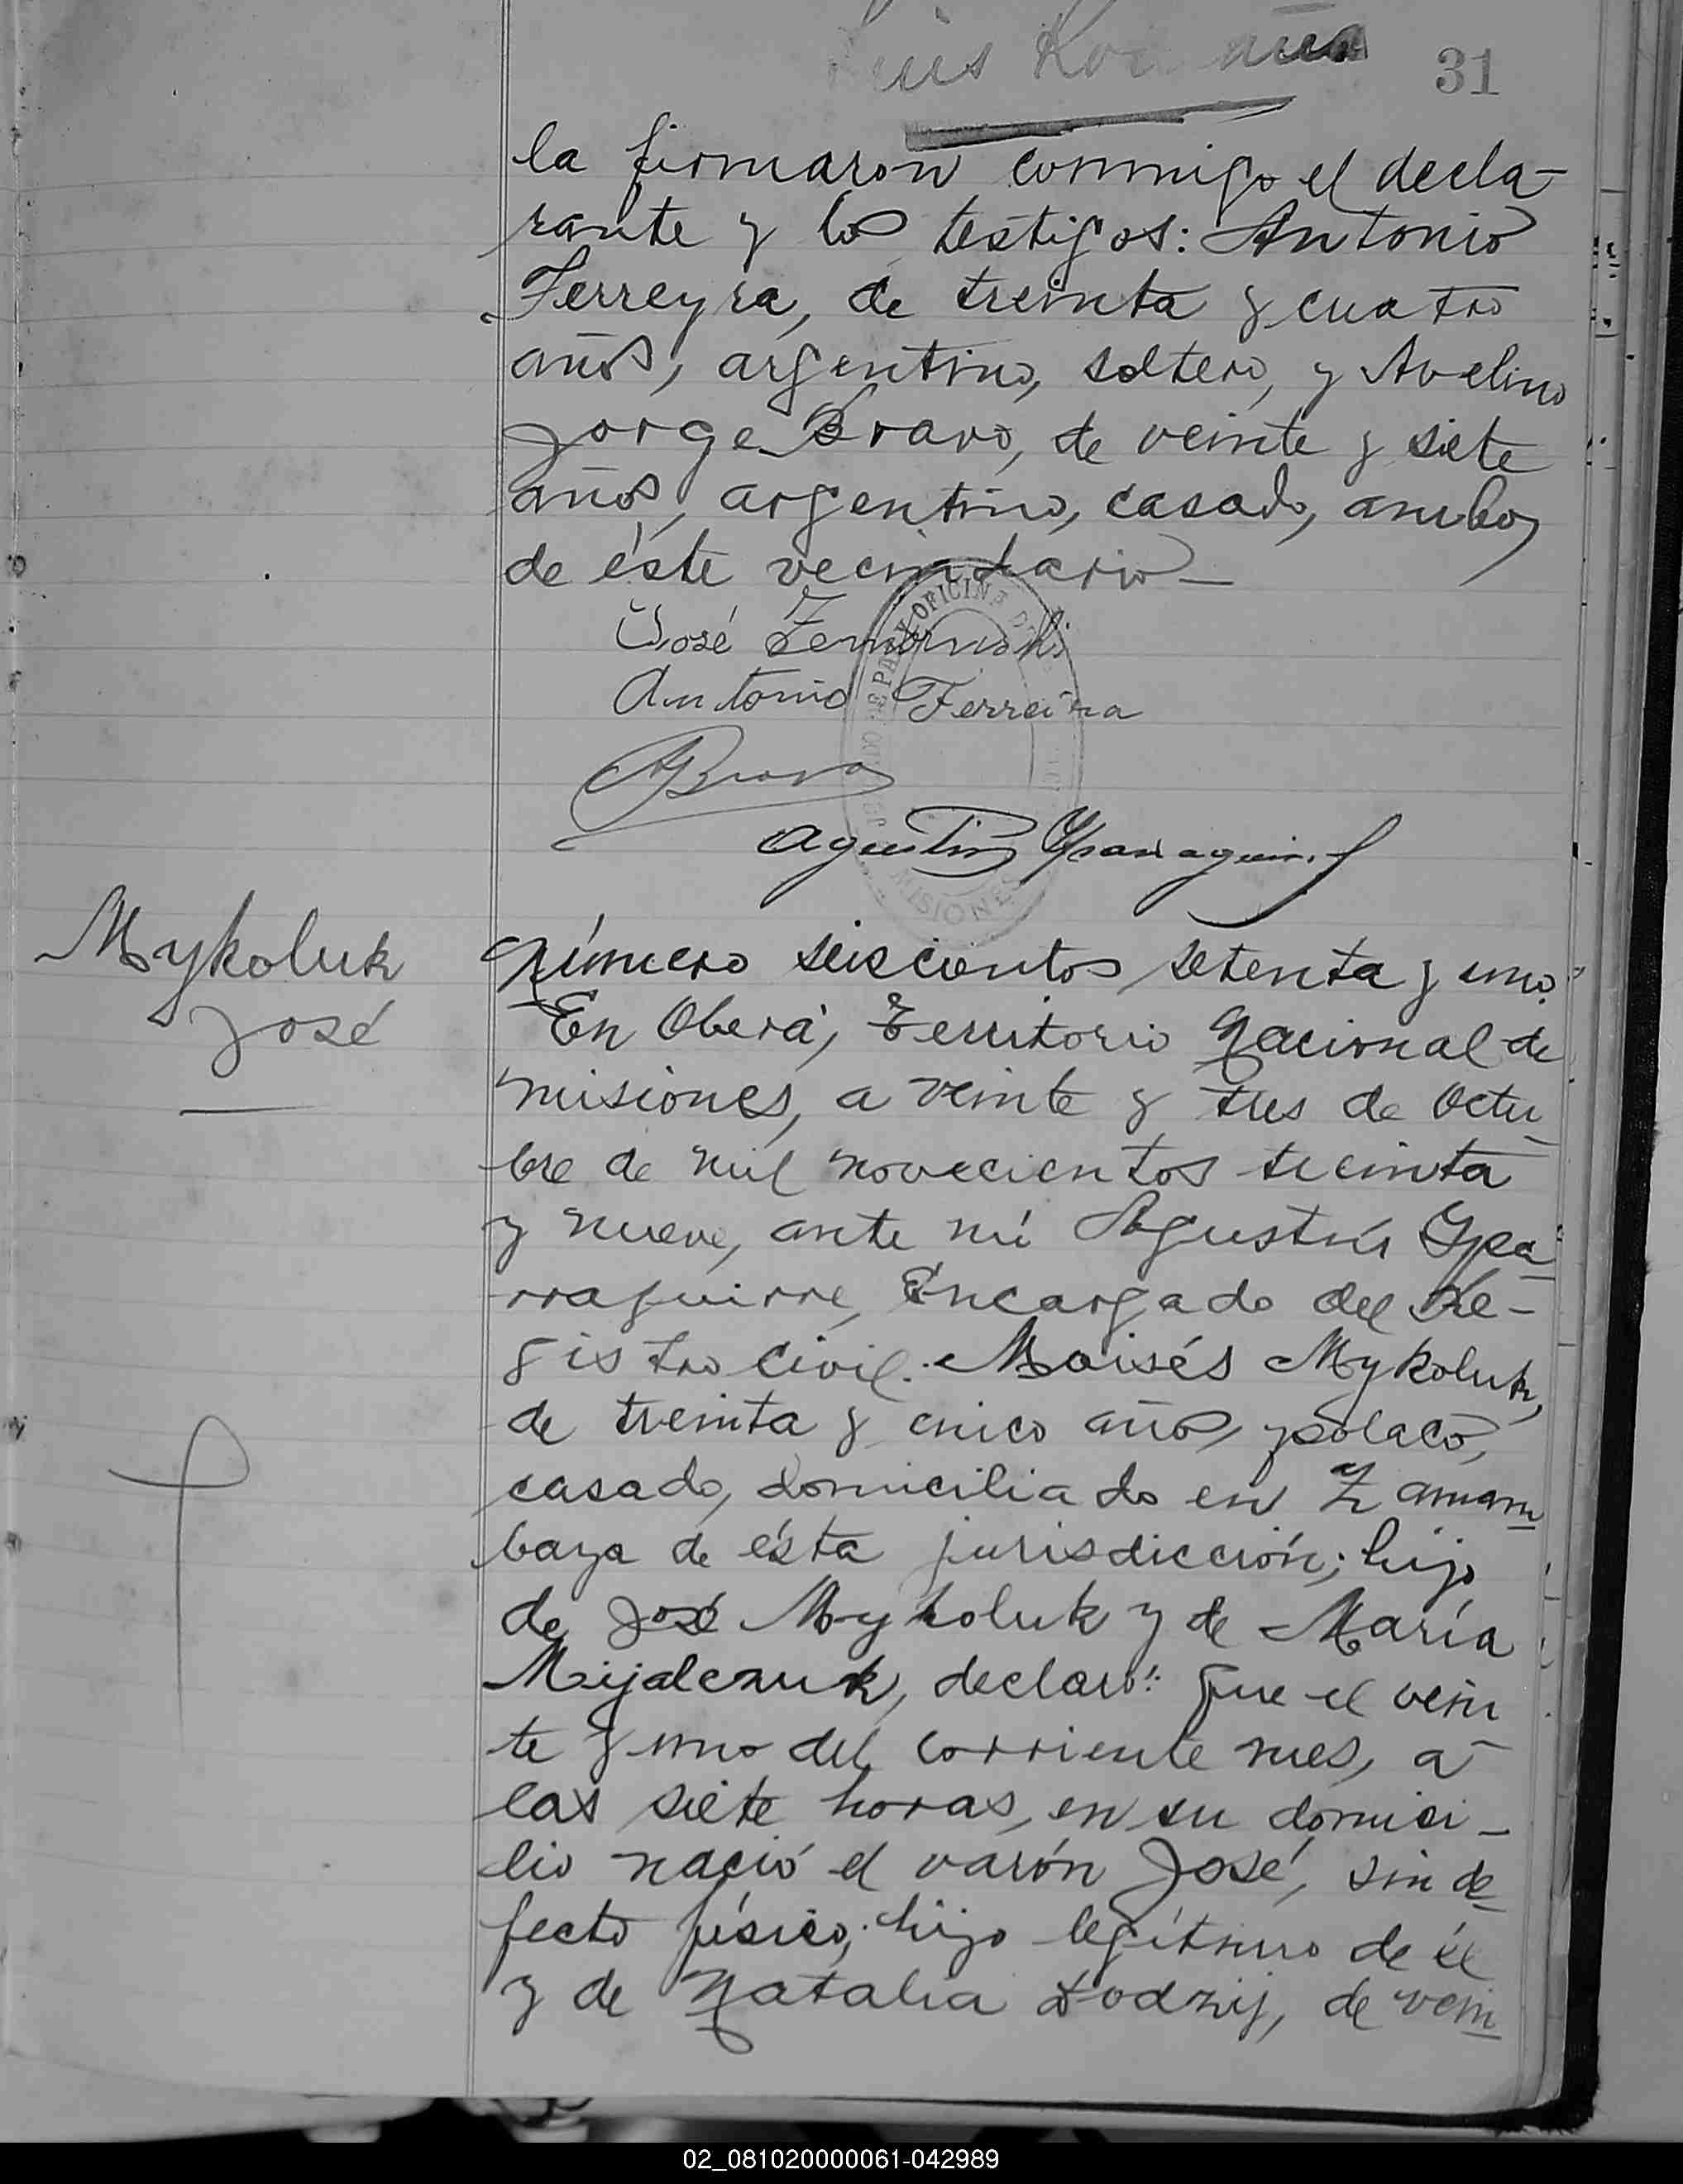 Luis
31
la firmaron conmigo el decla-
rante y los testigos: Antonio
Ferreyra, de treinta y cuatro
años, argentino, soltero, y Avelino
Jorge Bravo, de veinte y siete
años, argentino, casado, ambos
de éste vecindario—
José
Antonio Ferreira
ABravo
Agustin Yparraguirre
OFICINA DE
DE PAZ Y
MISIONES
Mykoluk
José
Número seiscientos setenta y uno.
En Oberá, Territorio Nacional de
Misiones, a veinte y tres de Octu-
bre de mil novecientos treinta
y nueve, ante mí Agustín Ypa-
rraguirre, Encargado del Re-
gistro Civil: Moisés Mykoluk,
de treinta y cinco años, polaco,
casado, domiciliado en Zamam-
baya de ésta jurisdicción; hijo
de José Mykoluk y de María
Mijalczuk, declaró: que el vein
te y uno del corriente mes, a
las siete horas, en su domici-
lio nació el varón José, sin de-
fecto físico; hijo legítimo de él
y de Natalia Lodzij, de vein-
02_081020000061-042989